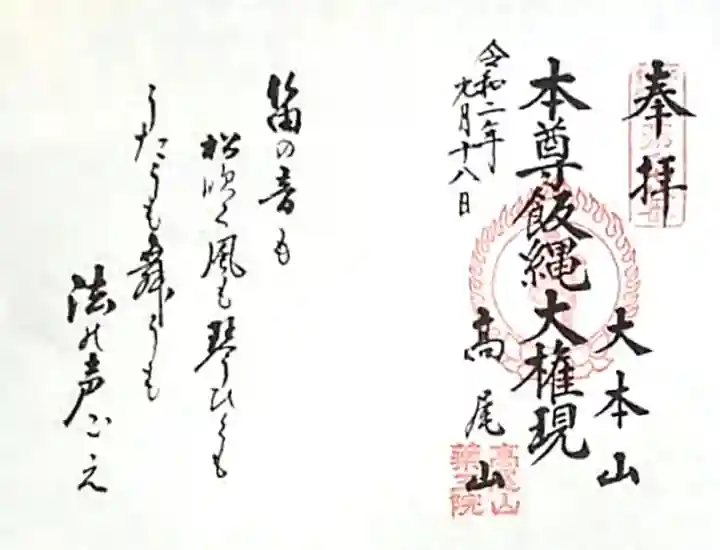 奉拝
大本山
本尊飯縄大権現
高尾山
高尾山
薬王院
令和二年
月十八日
笛の音も
松吹く風も琴ひくも
うたうも舞うも
法の声ごえ